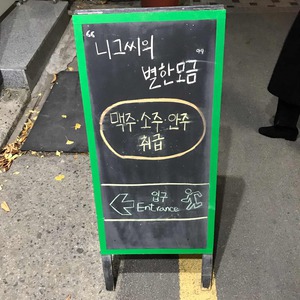 “ 니그씨의
별한모금 ”
맥주·소주·안주
취급
입구
Entrance